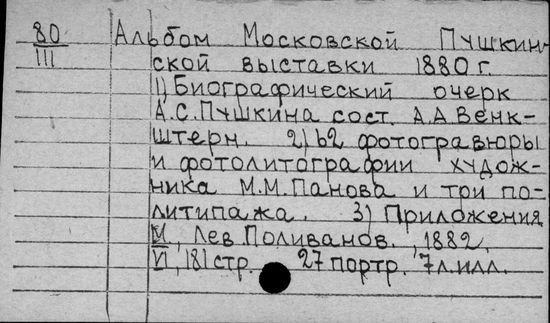 80 Альбом Московской Пушкин-
III ской выставки 1880 г.
1) Биографический очерк
А.С. Пушкина сост. А.А Венк-
штерн. 2) 62 фотогравюры
и фотолитографии худож-
ника М.М. Панова и три по-
литипажа. 3) Приложения
М., Лев Поливанов., 1882.
VI, 181 стр. 27 портр. 7 л. илл.